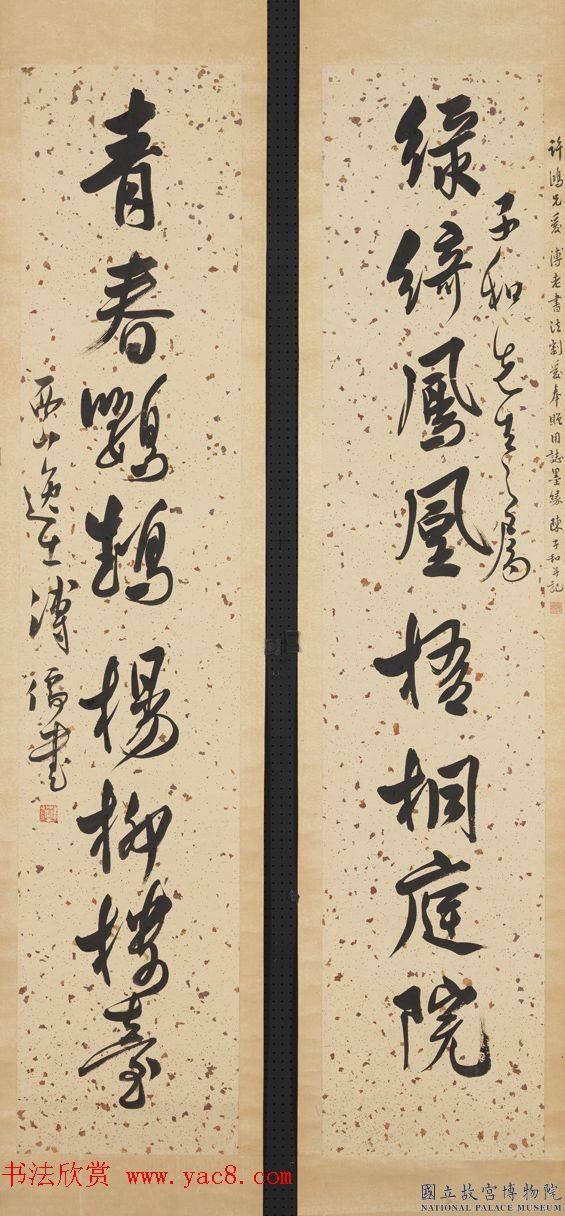 許鴻兄愛溥老書法割愛奉贈因誌墨緣陳子和并記
子和先生之屬
綠綺鳳凰梧桐庭院
青春鸚鵡楊柳樓臺
西山逸士溥儒書
书法欣赏 www.yac8.com
國立故宮博物院
NATIONAL PALACE MUSEUM